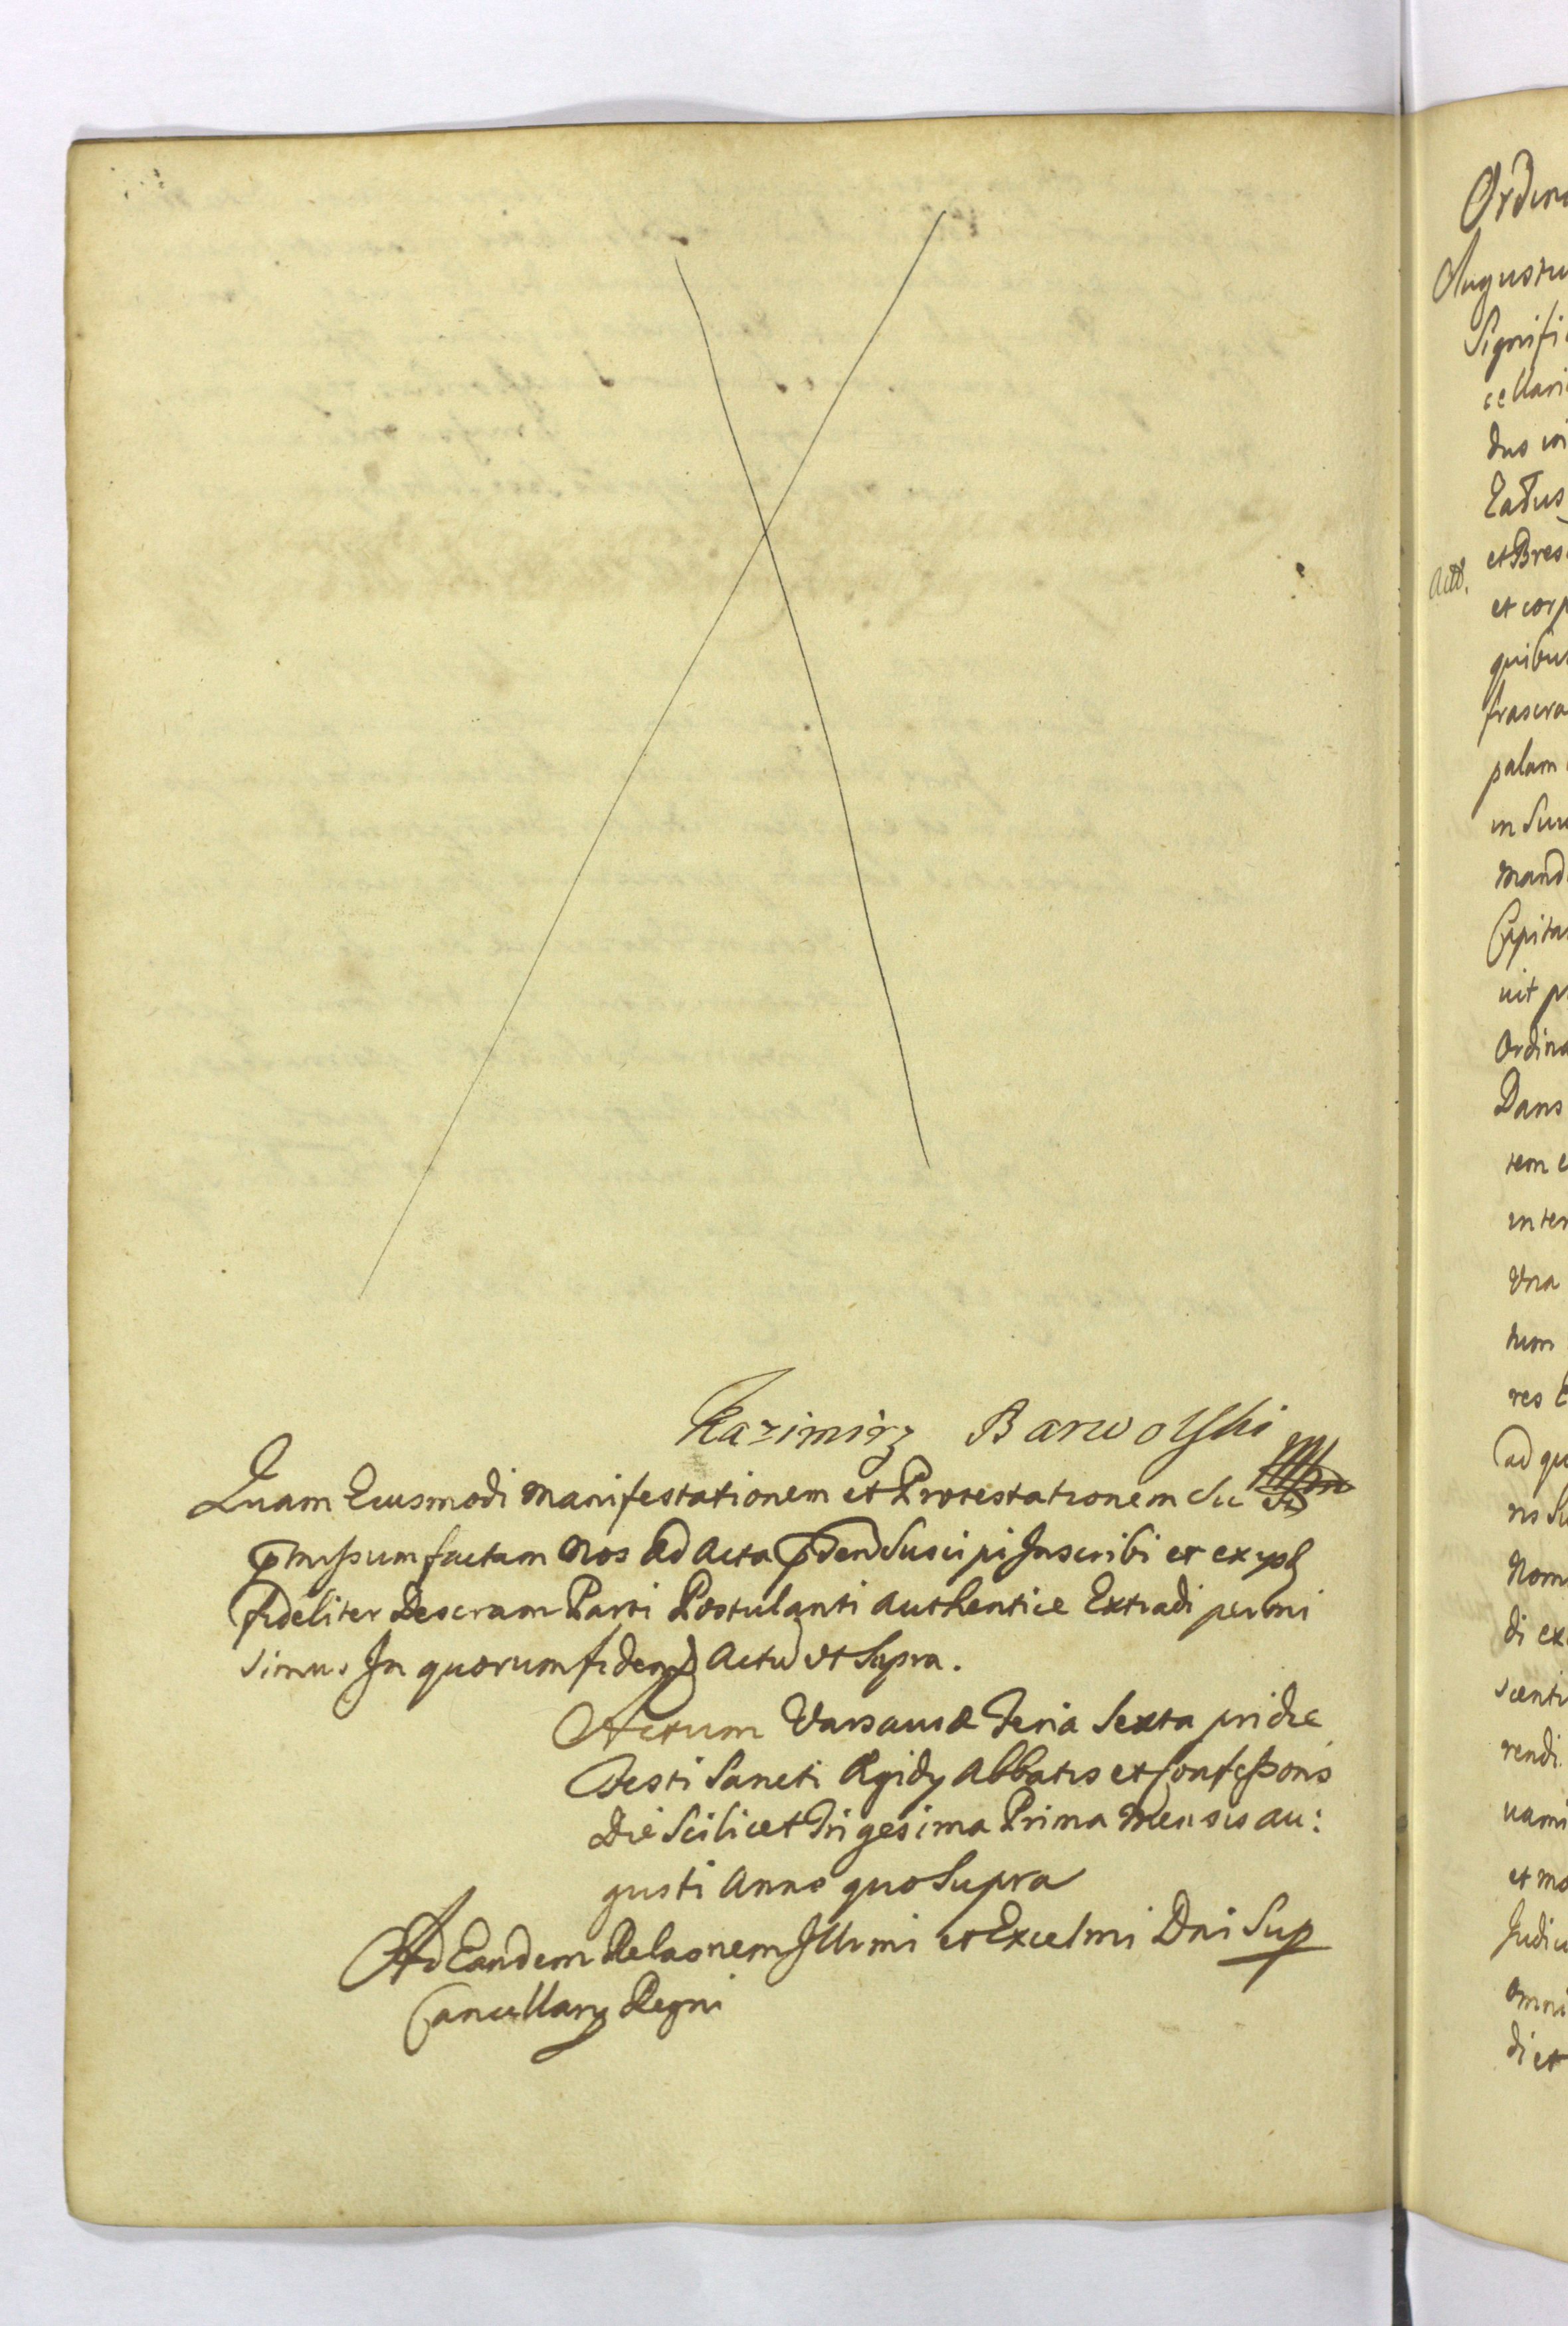 Kazimirz Barwolski
Quam Eiusmodi Manifestationem et Protestationem Su
pmissum factam Nos Ad Acta pden Suscipi Inscribi et ex ysb
fideliter Descram Parti Postulanti Authentice Extradi permi
simus In quorum fidem Actu ut Supra.
Actum Varsauiæ Feria Sexta pridie
Festi Sancti Ægidy Abbatis et Confessoris
Die Scilicet Trigesima Prima Mensis Au:
gusti Anno quo Supra
Ad Eandem Relaonem Illrmi et Excelmi Dni Sup
Cancellary Regni
Ordina
Augustu
Signifi
cellari
dus in
Eatus
et Bres
Actt.
et corp
quibus
frascra
palam
in Suu
Mand
Capita
uit p
Ordina
Dans
tem e
inter
Una
tum
res E
ad qu
ris Su
Nom
di ex
scenti
rendi.
uami
et mo
Judici
omni
di et